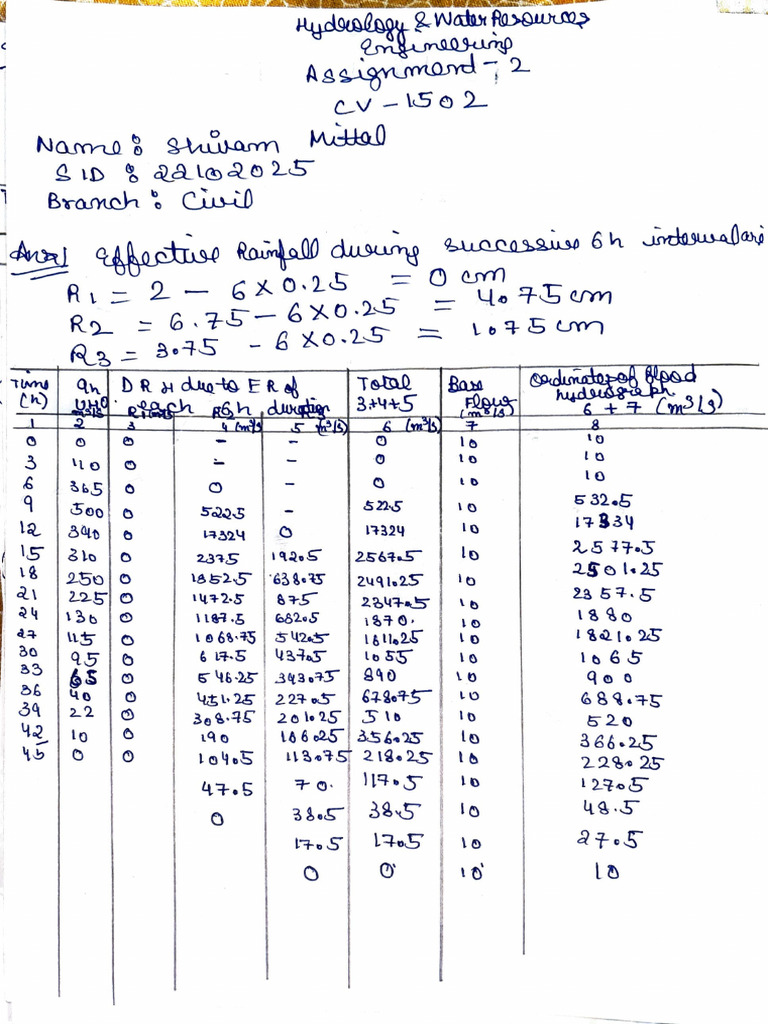 Hydrology & Water Resources
Engineering
Assignment-2
CV-1502
Name: Shivam Mittal
SID: 22102025
Branch: Civil
Ans1 Effective Rainfall during successive 6h intervals are
R1 = 2 - 6X0.25 = 0 cm
R2 = 6.75-6X0.25 = 4.75cm
R3 = 3.75 - 6X0.25 = 1.75cm
Time (h) 9h UHO m³/s DRH due to ER of each 6h duration Total 3+4+5 Base Flow (m³/s) Ordinates of flood hydrograph 6+7 (m³/s)
1 2 3 4 (m³/s) 5 (m³/s) 6 (m³/s) 7 8
0 0 0 - - 0 10 10
3 110 0 - - 0 10 10
6 365 0 0 - 0 10 10
9 500 0 522.5 - 522.5 10 532.5
12 390 0 17324 0 17324 10 17334
15 310 0 2375 192.5 2567.5 10 2577.5
18 250 0 1852.5 638.75 2491.25 10 2501.25
21 225 0 1472.5 875 2347.5 10 2357.5
24 130 0 1187.5 682.5 1870. 10 1880
27 115 0 1068.75 542.5 1611.25 10 1821.25
30 95 0 617.5 437.5 1055 10 1065
33 65 0 546.25 343.75 890 10 900
36 40 0 451.25 227.5 678.75 10 688.75
39 22 0 308.75 201.25 510 10 520
42 10 0 190 166.25 356.25 10 366.25
45 0 0 104.5 113.75 218.25 10 228.25
47.5 70. 117.5 10 127.5
0 38.5 38.5 10 48.5
17.5 17.5 10 27.5
0 0 10 10